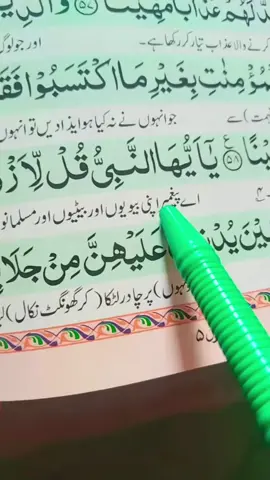 لَهُمْ عَذَابًا مُّهِينًا ۝٥٧ وَالَّذِينَ
کرنے والا عذاب تیار کر رکھا ہے۔ اور جو لوگ
بِغَيْرِ مَا اكْتَسَبُوْا فَقَدِ
جو انہوں نے نہ کیا ہو ایذا دیں تو انہوں
۝٥٨ يٰۤاَيُّهَا النَّبِىُّ قُلْ لِّاَزْ
اے پیغمبر اپنی بیویوں اور بیٹیوں اور مسلمانو
عَلَيْهِنَّ مِنْ جَلَا
پر چادر لٹکا (کر گھونگٹ نکال)